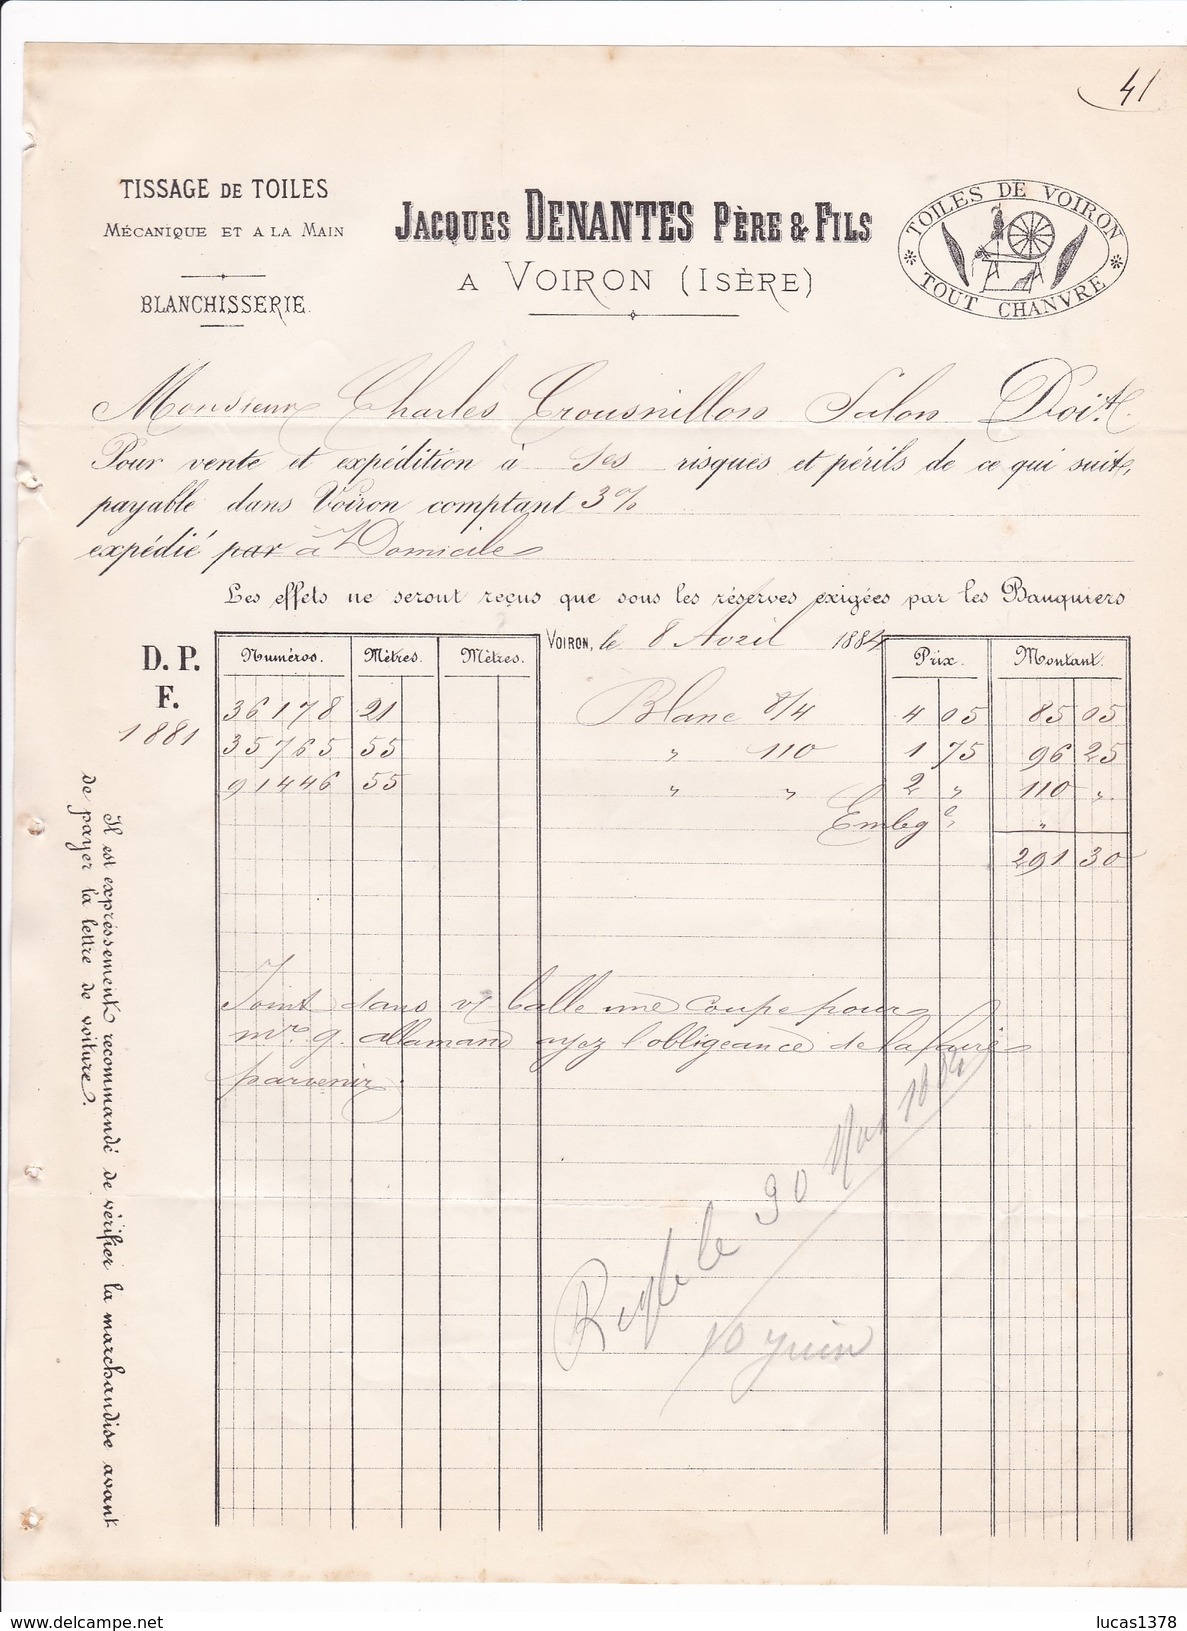 41
TISSAGE DE TOILES
MÉCANIQUE ET A LA MAIN
BLANCHISSERIE.
JACQUES DENANTES PÈRE & FILS
A VOIRON (ISÈRE)
TOILES DE VOIRON
TOUT CHANVRE
Monsieur Charles Crousnillon Salon Doit.
Pour vente et expédition à ses risques et périls de ce qui suit,
payable dans Voiron comptant 3%
expédié par à Domicile
Les effets ne seront reçus que sous les réserves exigées par les Banquiers
VOIRON, le 8 Avril 1884
D. P.
F.
1881
Numéros. Mètres. Mètres. Prix. Montant.
36178 21 Blanc 8/4 4 05 85 05
35765 55 " 110 1 75 96 25
91446 55 " " 2 " 110 "
Embge " "
291 30
Joint dans v/ balle une coupe pour
mr g. allamand ayez l'obligeance de la faire
parvenir.
Réglé le 30
10 juin
Il est expressement recommandé de vérifier la marchandise avant
de payer la lettre de voiture.
lucas1378